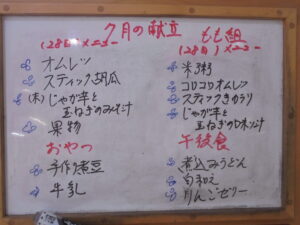 7月の献立
(28日)メニュー
オムレツ
スティック胡瓜
(木)じゃが芋と
玉ねぎのみそ汁
果物
おやつ
手作り煮豆
牛乳
もも組
(28日)メニュー
米粥
コロコロオムレツ
スティックきゅうり
じゃが芋と
玉ねぎのみそ汁
午後食
煮込みうどん
白和え
りんごゼリー